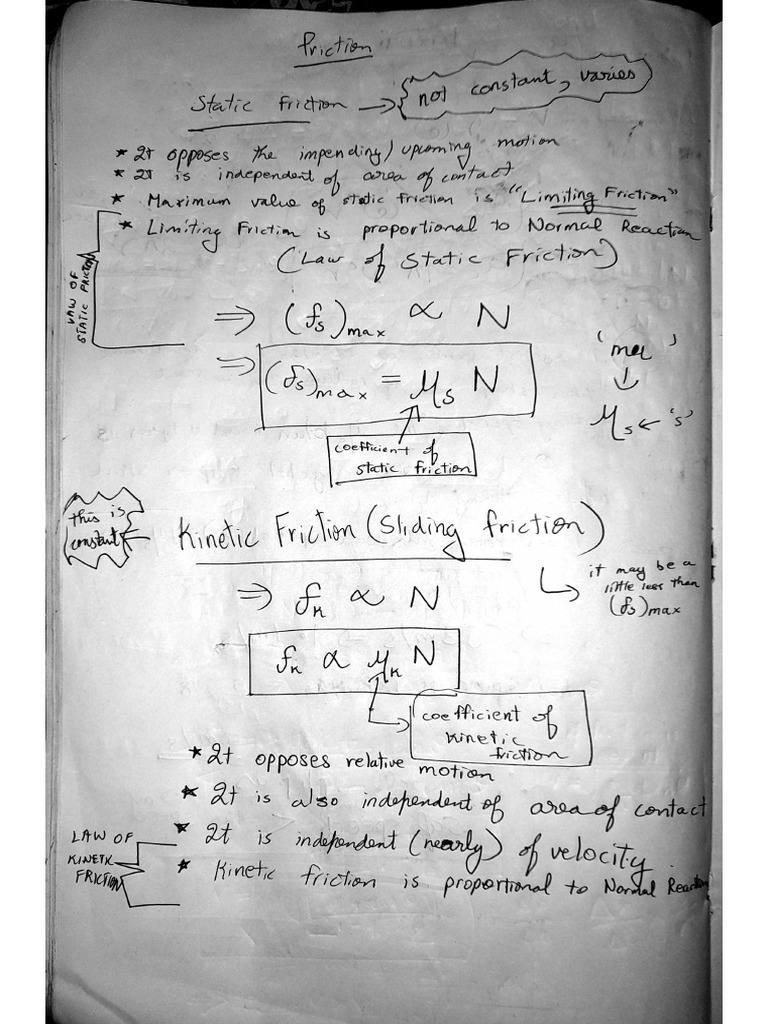 Friction
Static Friction → not constant, varies
* It opposes the impending/upcoming motion
* It is independent of area of contact
* Maximum value of static friction is "Limiting Friction"
* Limiting Friction is proportional to Normal Reaction
(Law of Static Friction)
LAW OF
STATIC FRICTION
⇒ (fs)max ∝ N
⇒ (fs)max = μs N
coefficient of
static friction
μs ← 's'
this is
constant
Kinetic Friction (Sliding friction)
it may be a
little less than
(fs)max
⇒ fk ∝ N
fk ∝ μk N
coefficient of
kinetic
friction
* It opposes relative motion
* It is also independent of area of contact
* It is independent (nearly) of velocity.
* Kinetic friction is proportional to Normal Reaction
LAW OF
KINETIC
FRICTION